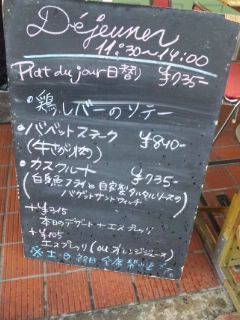 Déjeuner
11:30~14:00
Plat du jour 日替り ¥735-
・鶏レバーのソテー
・バベットステーク ¥840-
(牛さがり肉)
・カスクルート ¥735-
(白身魚フライと自家製タルタルソースの
バゲットサンドウィッチ)
+¥315
本日のデザート+エスプレッソ
+¥105
エスプレッソ (ouオレンジジュース)
※土日祝日 全席禁